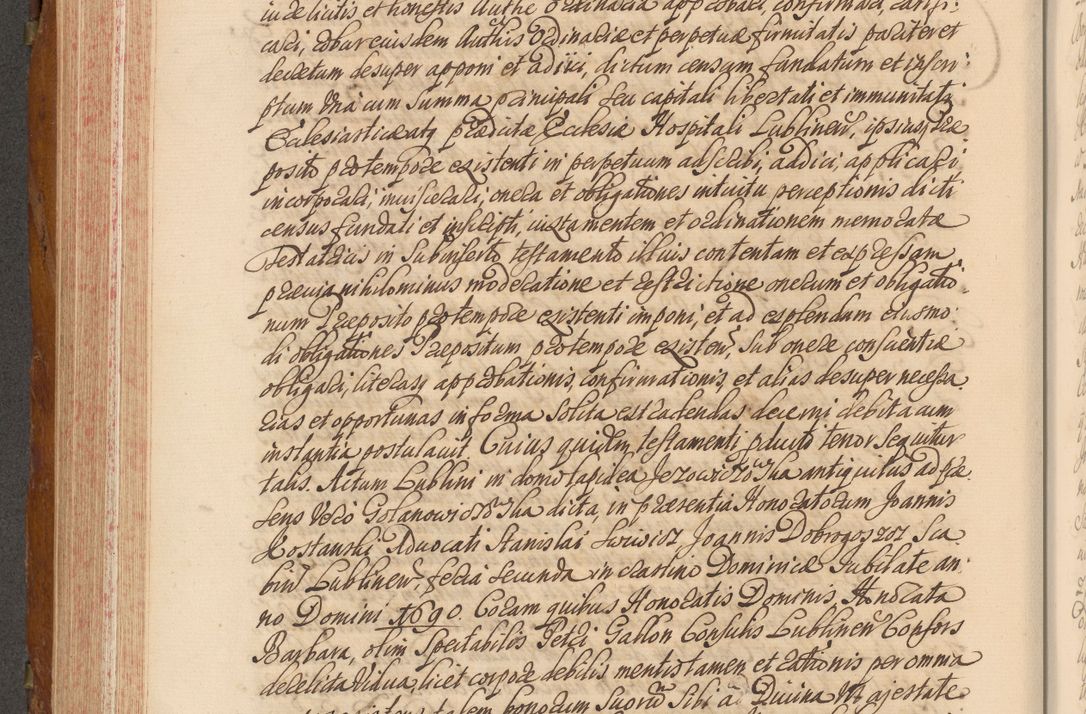 in ac licitis et honestis Autthe Ordinaria approbari, confirmari, ratifi:
cari, robureiusdem Autthis Ordinariae et perpetuae firmitatis pariter et
decretum desuper apponi et adiici, dictum censum fundatum et inscri:
ptum una cum summa principali seu capitali libertati et immunitati
Ecclesiasticae atq praedictae Ecclesiae Hospitali Lublinen, ipsiusq Prae
posito protempore existenti in perpetuum adscribi, addici, applicari,
incorporari, inviscerari, onera et obligationes intuitu perceptionis dicti
census fundati et inscripti, iuxta mentem et ordinationem memoratae
Testatricis in subinserto testamento illius contentam et expressam
praevia nihilominus moderatione et restrictione onerum et obligatio:
num Praeposito protempore existenti imponi, et ad explendam eiusmo:
di obligationes Praepositum protempore existen, sub onere conscientiae
obligari, literasq approbationis, confirmationis, et alias desuper necessa
rias et opportunas in forma solita extradendas decerni debita cum
instantia postulavit. Cuius quidem testamenti producti tenor sequitur
talis. Actum Lublini in domo lapidea Jezowiczowska antiquitus ad prae
sens vero Golanowiczowska dicta, in praesentia Honoratorum Joannis
Kostanski Advocati Stanislai Joannis Dobrogoszcz Sca
bin Lublinen, feria secunda in crastino Dominicae Jubilate an:
no Domini 1690. Coram quibus Honoratis Dominis Honorata
Barbara, olim Spectabilis Petri Gallon Consulis Lublinen Consors
derelicta Vidua, licet corpore debilis mentis tamen et rationis per omnia
talem bonorum suorum sibi a Divina Majestate